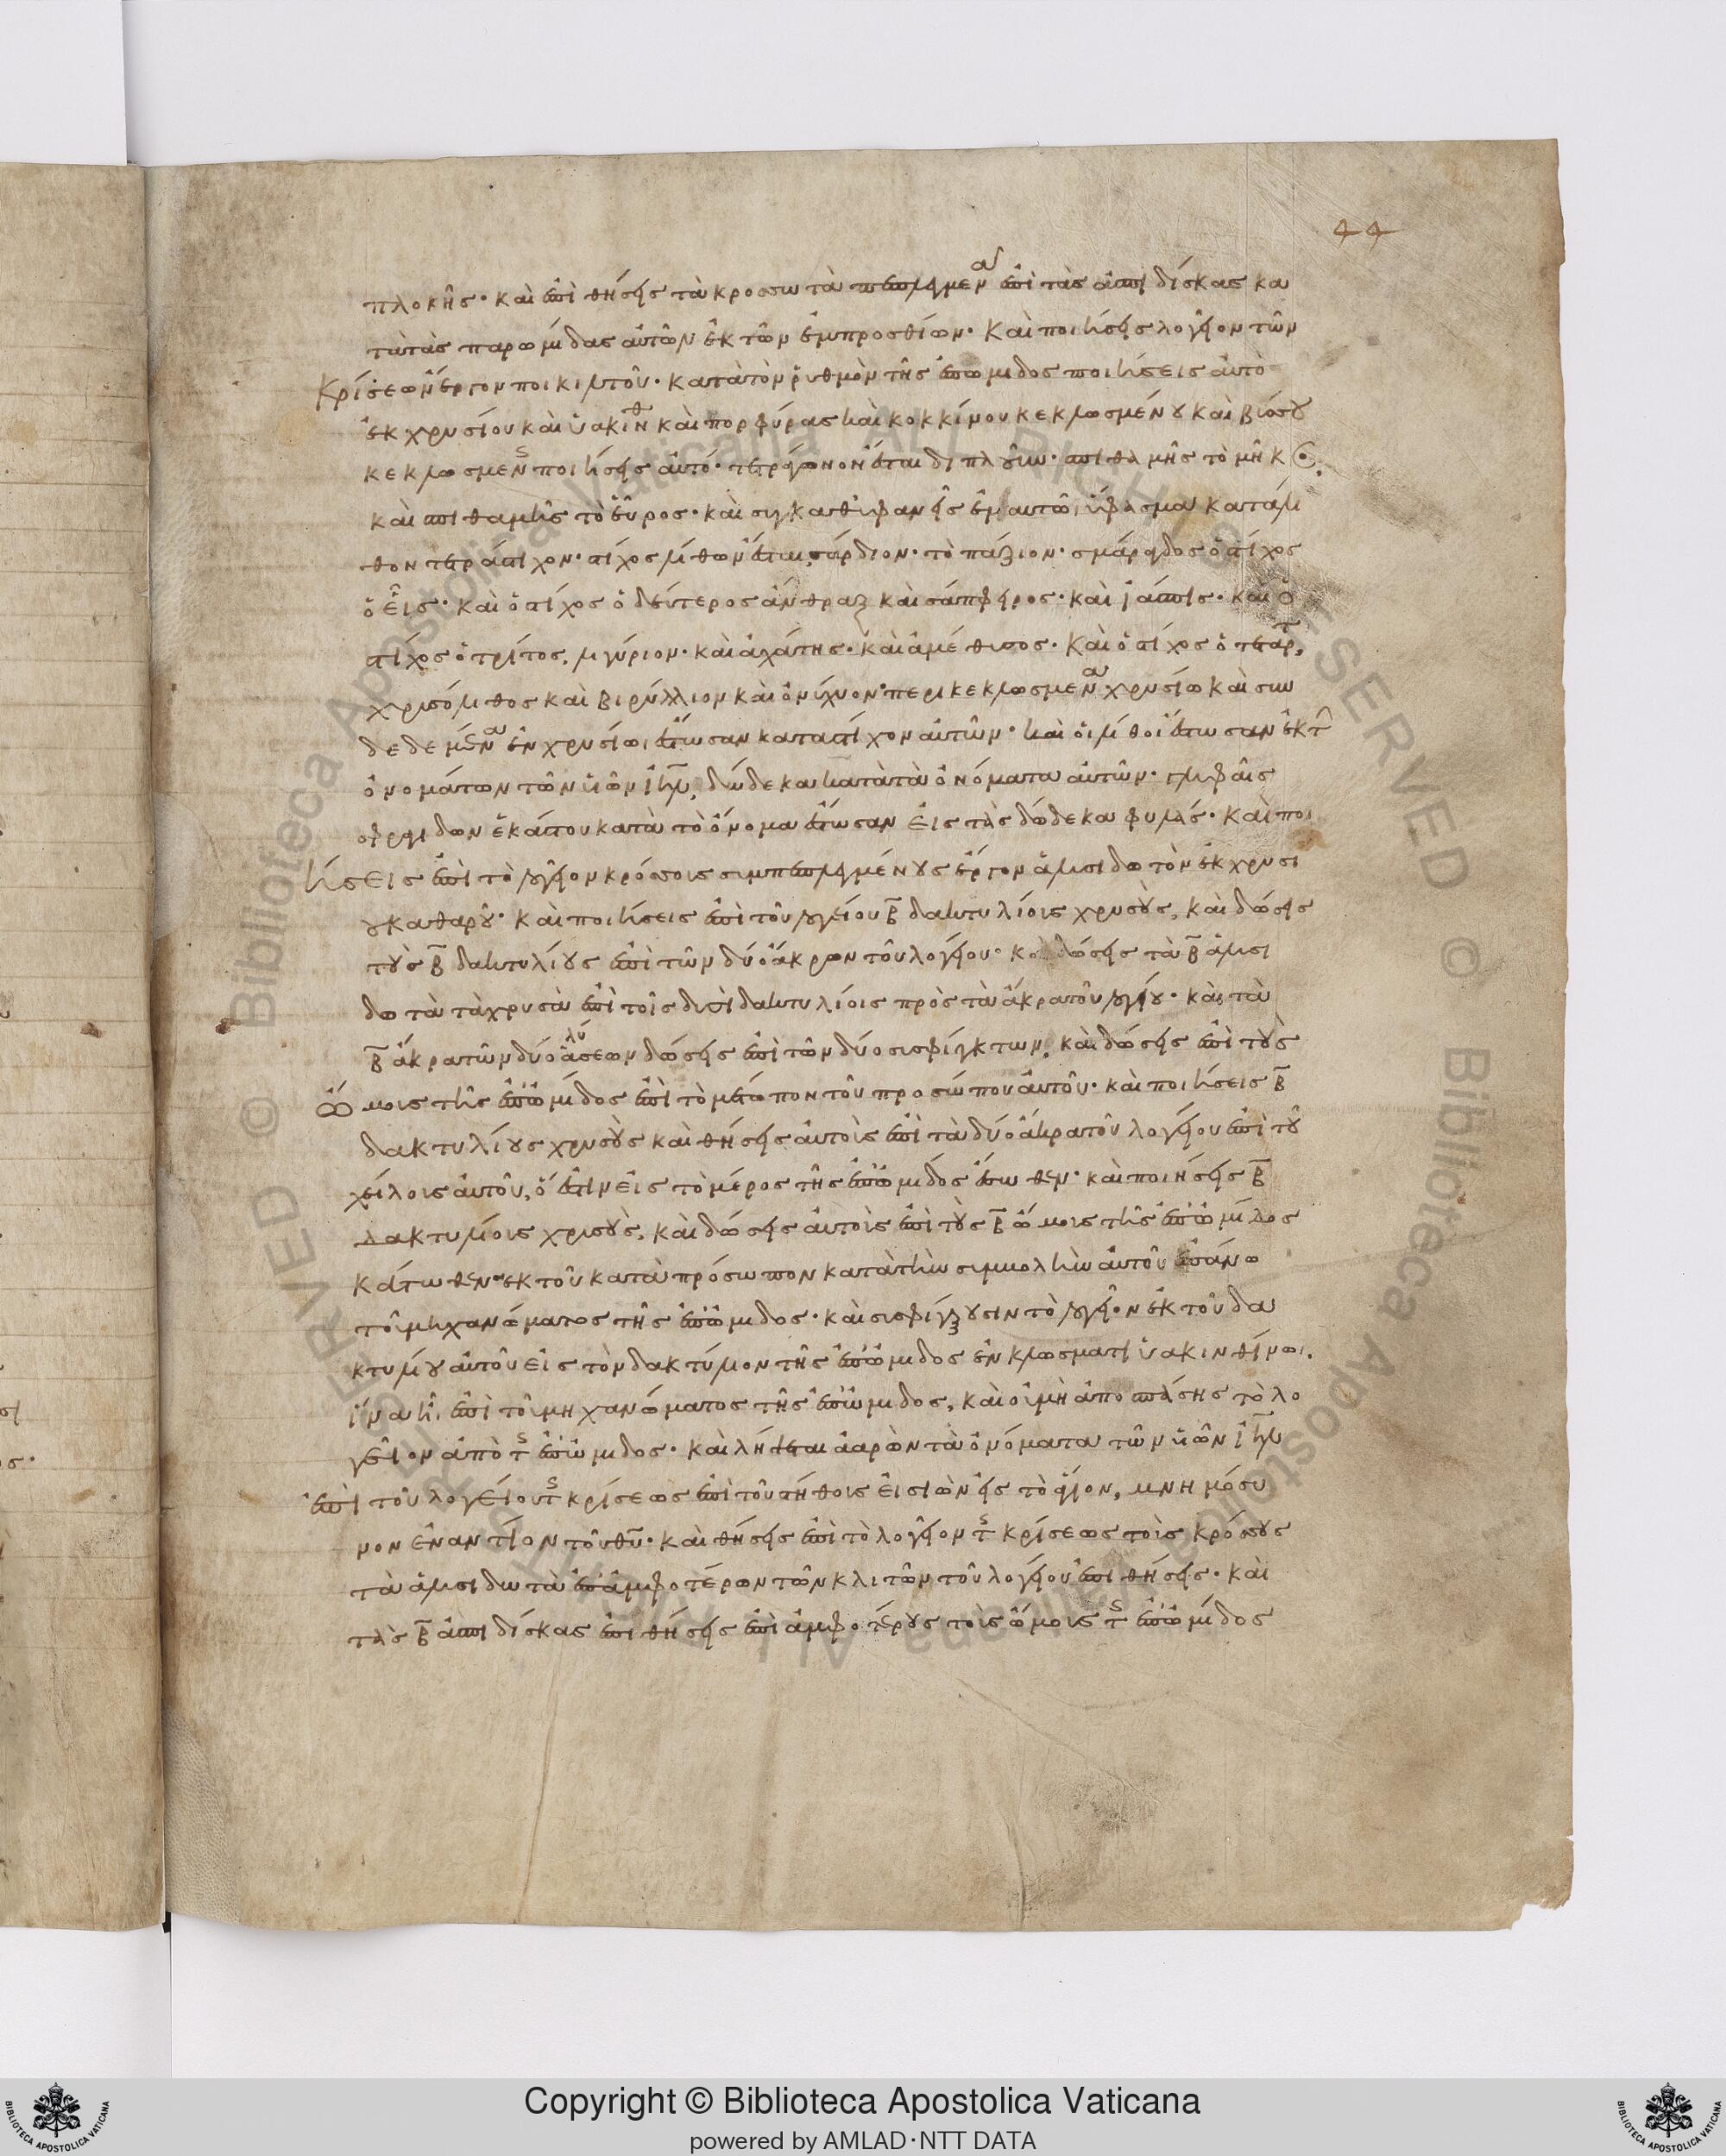 44
πλοκῆς· καὶ ἐπιθήσῃς τὰ κροσσωτὰ πεπλημεν αι ἐπὶ τὰς ἀσπιδίσκας κα
τὰ τὰς παρωμίδας αὐτῶν ἐκ τῶν ἐμπροσθίων· Καὶ ποιήσῃς λογῆον τῶν
Κρίσεων ἔργον ποικιλτοῦ· κατὰ τὸν ῥυθμὸν τῆς ἐπωμίδος ποιήσεις αὐτὸ
ἐκ χρυσίου καὶ ὑακίνθ καὶ πορφύρας καὶ κοκκίνου κεκλωσμένου καὶ βύσσου
κεκλωσμεν ποιήσῃς αὐτό· τετράγωνον ἔσται διπλοῦν· σπιθαμῆς τὸ μῆκος
καὶ σπιθαμῆς τὸ εὖρος· καὶ συγκαθυφανῇς ἐν αὐτῶ ὕφασμα κατάλι
θον τετράστιχον· στίχος λίθων ἔσται, σάρδιον· τὸπάζιον· σμάραγδος ὁ στίχος
ὁ εἷς· καὶ ὁ στίχος ὁ δεύτερος ἄνθραξ καὶ σάπφιρος· καὶ ἴασπις· καὶ ὁ
στίχος ὁ τρίτος, λιγύριον· καὶ ἀχάτης· καὶ ἀμέθυσος· Καὶ ὁ στίχος ὁ τέταρτ,
χρισόλιθος καὶ βιρύλλιον καὶ ὀνύχιον· περικεκλωσμεν α χρυσίω καὶ συν
δεδεμέν α ἐν χρυσίωι ἔστωσαν κατὰ στίχον αὐτῶν· καὶ οἱ λίθοι ἔστωσαν ἐκ τ
ὀνομάτων τῶν υἱῶν ἰηλ, δώδεκα κατὰ τὰ ὀνόματα αὐτῶν· γλυφαῖς
σφραγίδων ἑκάστου κατὰ τὸ ὄνομα ἔστωσαν εἰς τὰς δώδεκα φυλάς· Καὶ ποι
ήσεις ἐπὶ τὸ λογῆον κρόσσοις συμπεπλημένους ἔργον ἁλυσιδωτὸν ἐκ χρυσί
ου καθαροῦ· καὶ ποιήσεις ἐπὶ τοῦ λογείου β δακτυλίοις χρυσοῦς, καὶ δώσῃς
τοὺς β δακτυλίους ἐπὶ τῶν δύο ἄκρων τοῦ λογήου· καὶ δώσῃς τὰ β ἁλυσι
δωτὰ τὰ χρυσὰ ἐπὶ τοῖς δυσὶ δακτυλίοις πρὸς τὰ ἄκρα τοῦ λογίου· καὶ τὰ
β ἄκρα τῶν δύο ἁλύσεων δώσῃς ἐπὶ τῶν δύο συσφίγκτων, καὶ δώσῃς ἐπὶ τοὺς
ὤμοις τῆς ἐπωμίδος ἐπὶ τὸ μέτωπον τοῦ προσώπου αὐτοῦ· καὶ ποιήσεις β
δακτυλίους χρυσοὺς καὶ θήσῃς αὐτοὶς ἐπὶ τὰ δύο ἄκρα τοῦ λογήου ἐπὶ τοῦ
χείλοις αὐτοῦ, ὅ ἐστιν εἰς τὸ μέρος τῆς ἐπωμίδος ἔσωθεν· καὶ ποιήσῃς β
δακτυλίοις χρισοὺς, καὶ δώσῃς αὐτοὶς ἐπὶ τοὺς β ὤμοις τῆς ἐπωμίδος
κάτωθεν· ἐκ τοῦ κατὰ πρόσωπον κατὰ τὴν συμβολὴν αὐτοῦ ἐπάνω
τοῖ μηχανώματος τῆς ἐπωμίδος· καὶ συσφίγξουσιν τὸ λογῆον ἐκ τοῦ δα
κτυλίου αὐτοῦ εἰς τὸν δακτύλιον τῆς ἐπωμίδος ἐν κλώσματι ὑακινθίνωι.
ἵνα ἦ, ἐπὶ τοῖ μηχανώματος τῆς ἐπωμίδος, καὶ οἱ μὴ ἀποσπάσης τὸ λο
γεῖον ἀπὸ τς ἐπωμίδος· καὶ λήψεται ἀαρὼν τὰ ὀνόματα τῶν υἱῶν ἰηλ
ἐπὶ τοῦ λογείου τς κρίσεως ἐπὶ τοῦ στήθοις εἰσιὼν εἰς τὸ ἅγιον, μνημόσυ
νον ἐναντίον τοῦ θυ· καὶ θήσῃς ἐπὶ τὸ λογῆον τς κρίσεως τοὶς κρόσσους
τὰ ἁλυσιδωτὰ ἐπ ἀμφοτέρων τῶν κλιτῶν τοῦ λογήου ἐπιθήσῃς· καὶ
τὰς β ἀσπιδίσκας ἐπιθήσῃς ἐπὶ ἀμφοτέρους τοὶς ὤμοις τς ἐπωμίδος
Copyright © Biblioteca Apostolica Vaticana
powered by AMLAD·NTT DATA